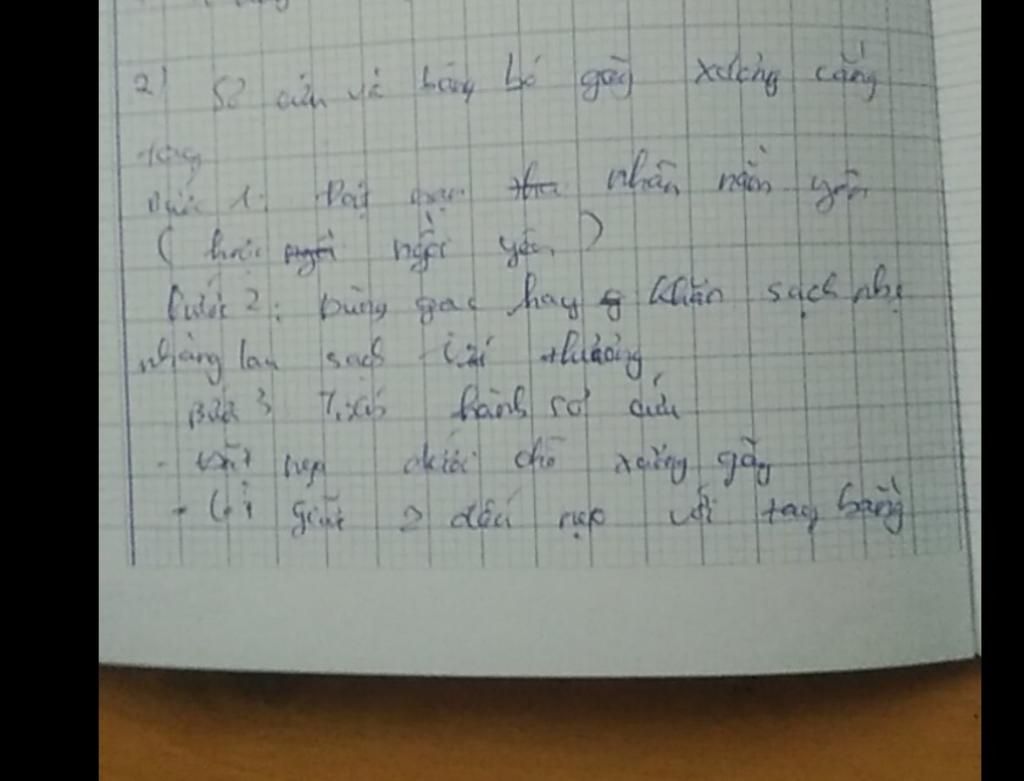 2) Sơ cứu và băng bó gãy xương cẳng
tay
Bước 1: Đặt nhân nằm yên
( hoặc ngồi yên )
Bước 2: Dùng gạc hay khăn sạch nhẹ
nhàng lau sạch thương
Bước 3 Tiến hành sơ cứu
- nẹp dưới chỗ xương gãy
+ 2 đầu nẹp với tay bằng